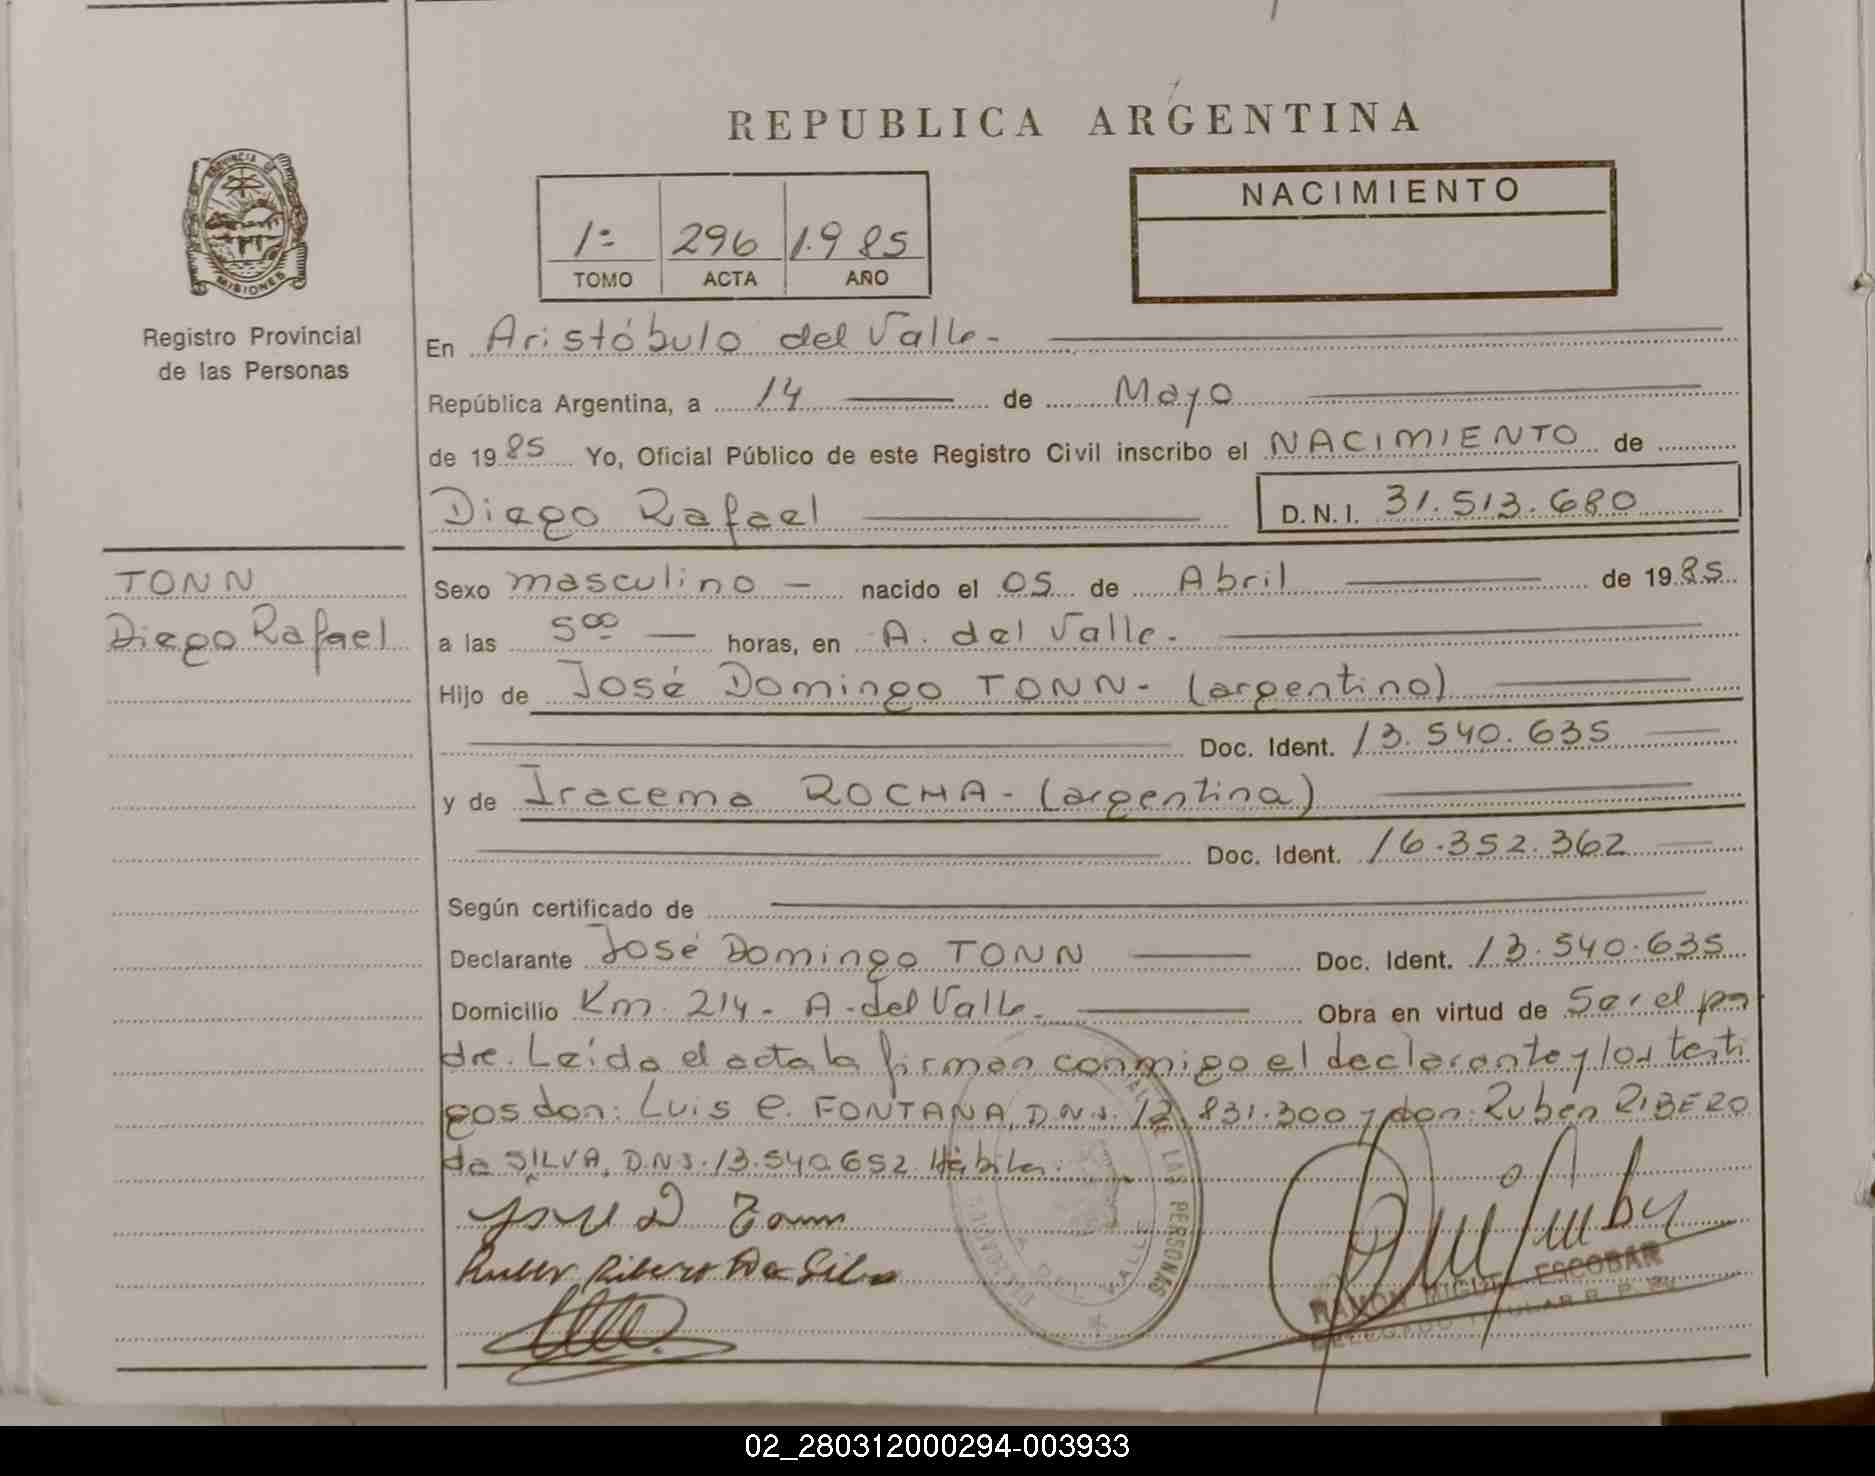 REPUBLICA ARGENTINA
PROVINCIA DE
MISIONES
Registro Provincial
de las Personas
1º 296 1.985
TOMO ACTA AÑO
NACIMIENTO
En Aristóbulo del Valle.-
República Argentina, a 14 de Mayo
de 1985 Yo, Oficial Público de este Registro Civil inscribo el NACIMIENTO de
Diego Rafael D.N.I. 31.513.680
TONN
Diego Rafael
Sexo masculino - nacido el 05 de Abril de 1985
a las 5⁰⁰ horas, en A. del Valle.
Hijo de José Domingo TONN- (argentino)
Doc. Ident. 13.540.635
y de Iracema ROCHA- (argentina)
Doc. Ident. 16.352.362
Según certificado de
Declarante José Domingo TONN Doc. Ident. 13.540.635
Domicilio Km. 214- A. del Valle. Obra en virtud de Ser el pa
dre. Leída el acta la firman conmigo el declarante y los testi
gos don: Luis e. FONTANA, D.N.I. 12.831.300 y don: Rubén RIBERO
da SILVA, D.N.I. 13.540.652 Hábiles.
José D Tonn
Ruben Ribero Da Silva
DE LAS PERSONAS
DEL VALLE
RAMON MIGUEL ESCOBAR
DELEGADO TITULAR R. P.
02_280312000294-003933